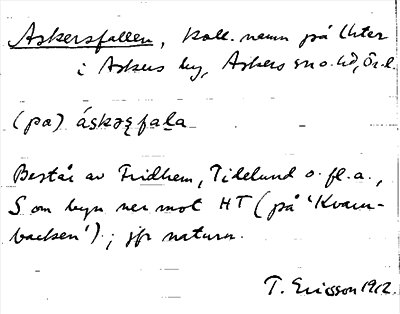 Askersfallen, koll. namn på lhter
i Askers by, Askers sn o. hd, Ör. l.
(pa) áskəʂfaḷa
Består av Fridhem, Tidelund o. fl. a.,
S om byn ner mot HT (på 'Kvarn-
backen'); jfr naturn.
T. Ericsson 1912.